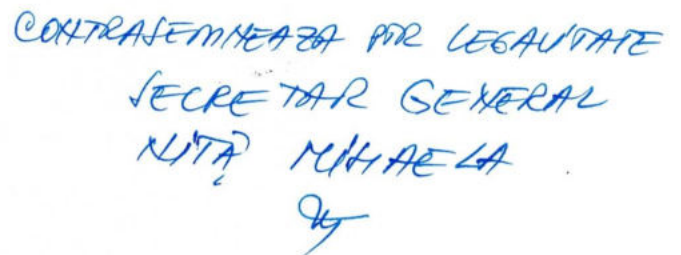 CONTRASEMNEAZA PTR LEGALITATE
SECRETAR GENERAL
NIȚĂ MIHAELA